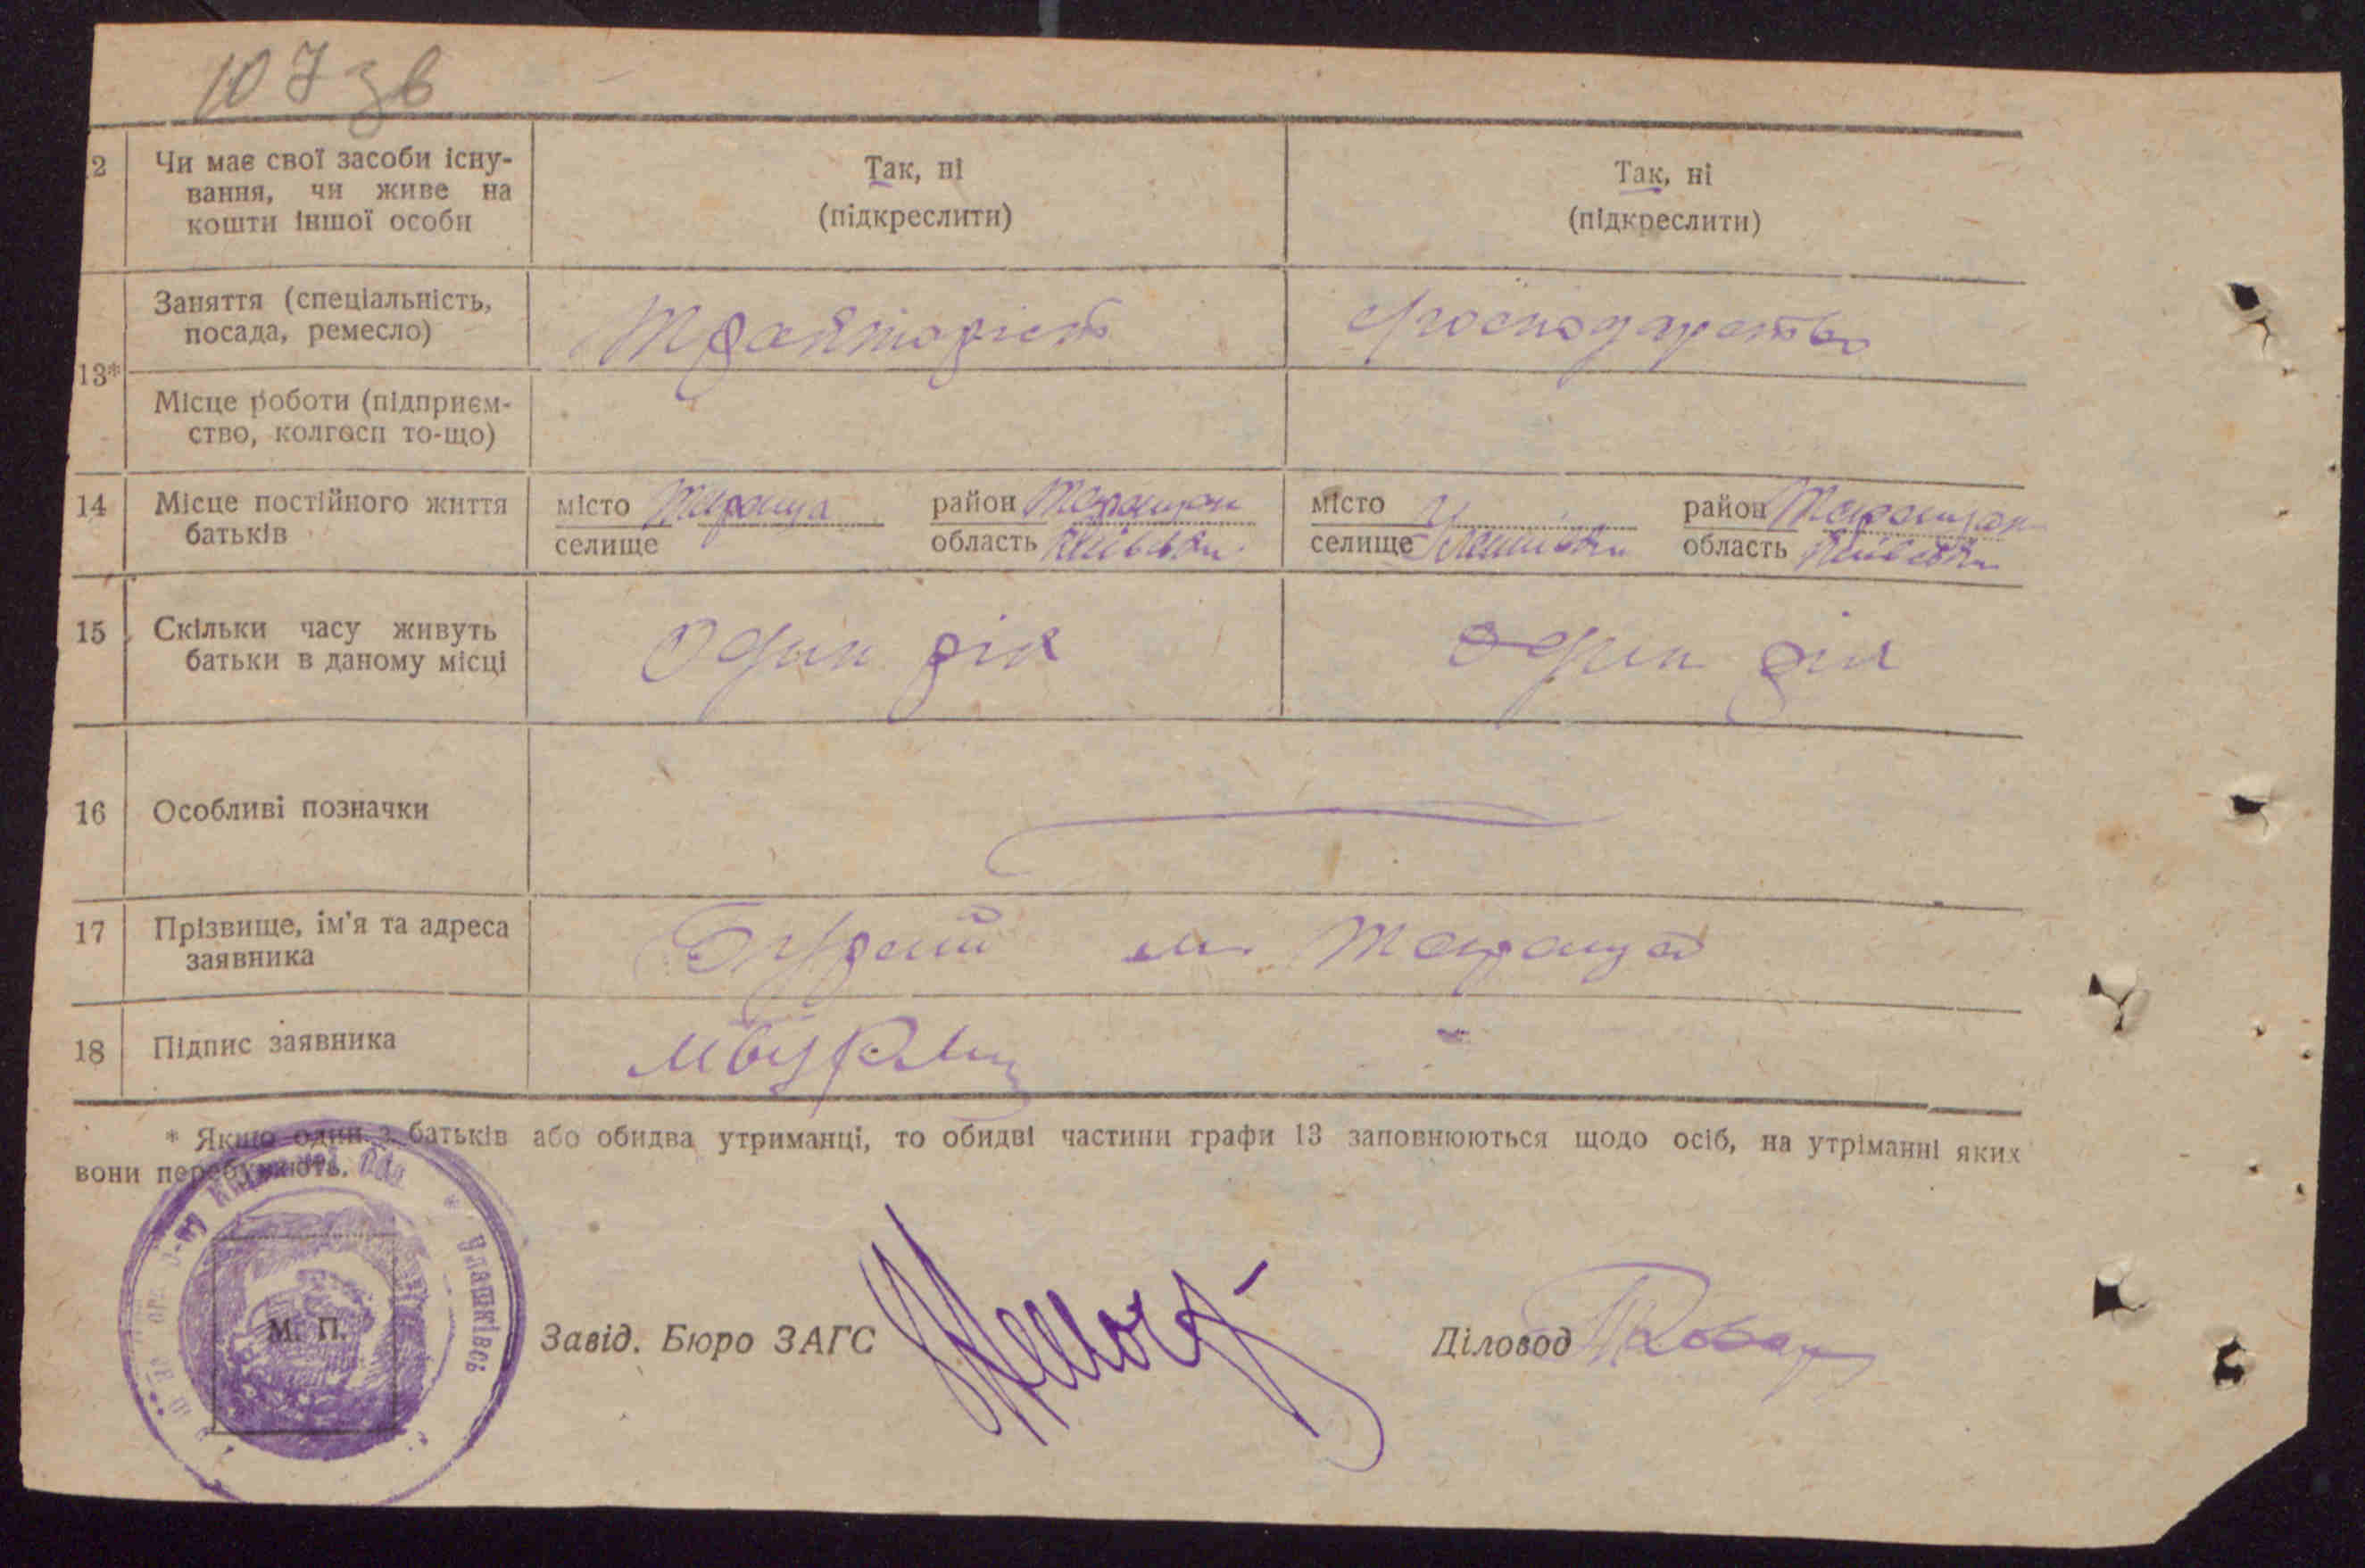 107 зв
2 Чи має свої засоби існу-
вання, чи живе на
кошти іншої особи
Так, ні
(підкреслити)
Так, ні
(підкреслити)
13*
Заняття (спеціальність,
посада, ремесло)
Тракторіст
господарство
Місце роботи (підприєм-
ство, колгосп то-що)
14 Місце постійного життя
батьків
місто Тараща район Таращан
селище область Київськ
місто район Таращан
селище область Київськ
15 Скільки часу живуть
батьки в даному місці
Один рік
Один рік
16 Особливі позначки
17 Прізвище, ім'я та адреса
заявника
м. Тараща
18 Підпис заявника
* Якщо один з батьків або обидва утриманці, то обидві частини графи 13 заповнюються щодо осіб, на утріманні яких
вони перебувають.
М. П.
Завід. Бюро ЗАГС
Діловод